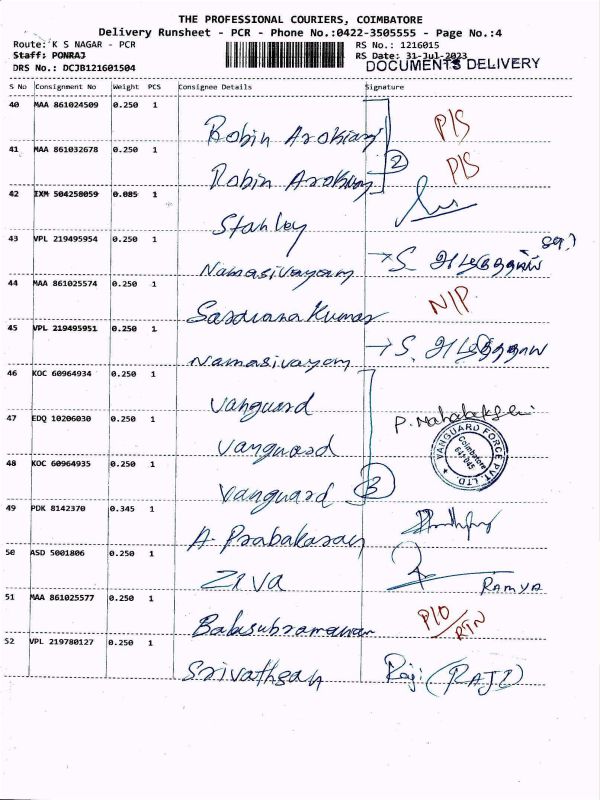 THE PROFESSIONAL COURIERS, COIMBATORE
Delivery Runsheet - PCR - Phone No.:0422-3505555 - Page No.:4
Route: K S NAGAR - PCR
RS No.: 1216015
Staff: PONRAJ
RS Date: 31-Jul-2023
DRS No.: DCJB121601504
DOCUMENTS DELIVERY
S No Consignment No Weight PCS Consignee Details Signature
40 MAA 861024509 0.250 1
Robin Arokiaraj P/S
41 MAA 861032678 0.250 1
2
Robin P/S
42 IXM 504258059 0.085 1
Stanley
43 VPL 219495954 0.250 1
Namasivayam → S.
44 MAA 861025574 0.250 1
Saravana Kumar N/P
45 VPL 219495951 0.250 1
Namasivayam → S.
46 KOC 60964934 0.250 1
Vanguard
P.
47 EDQ 10206030 0.250 1
Vanguard
VANGUARD FORCE PVT. LTD.
Coimbatore
641 045
48 KOC 60964935 0.250 1
Vanguard 3
49 PDK 8142370 0.345 1
A. Prabakaran
50 ASD 5001806 0.250 1
ZIVA RAMYA
51 MAA 861025577 0.250 1
Balasubramanian P/O/RTN
52 VPL 219780127 0.250 1
Srivathsan Raji (RAJI)